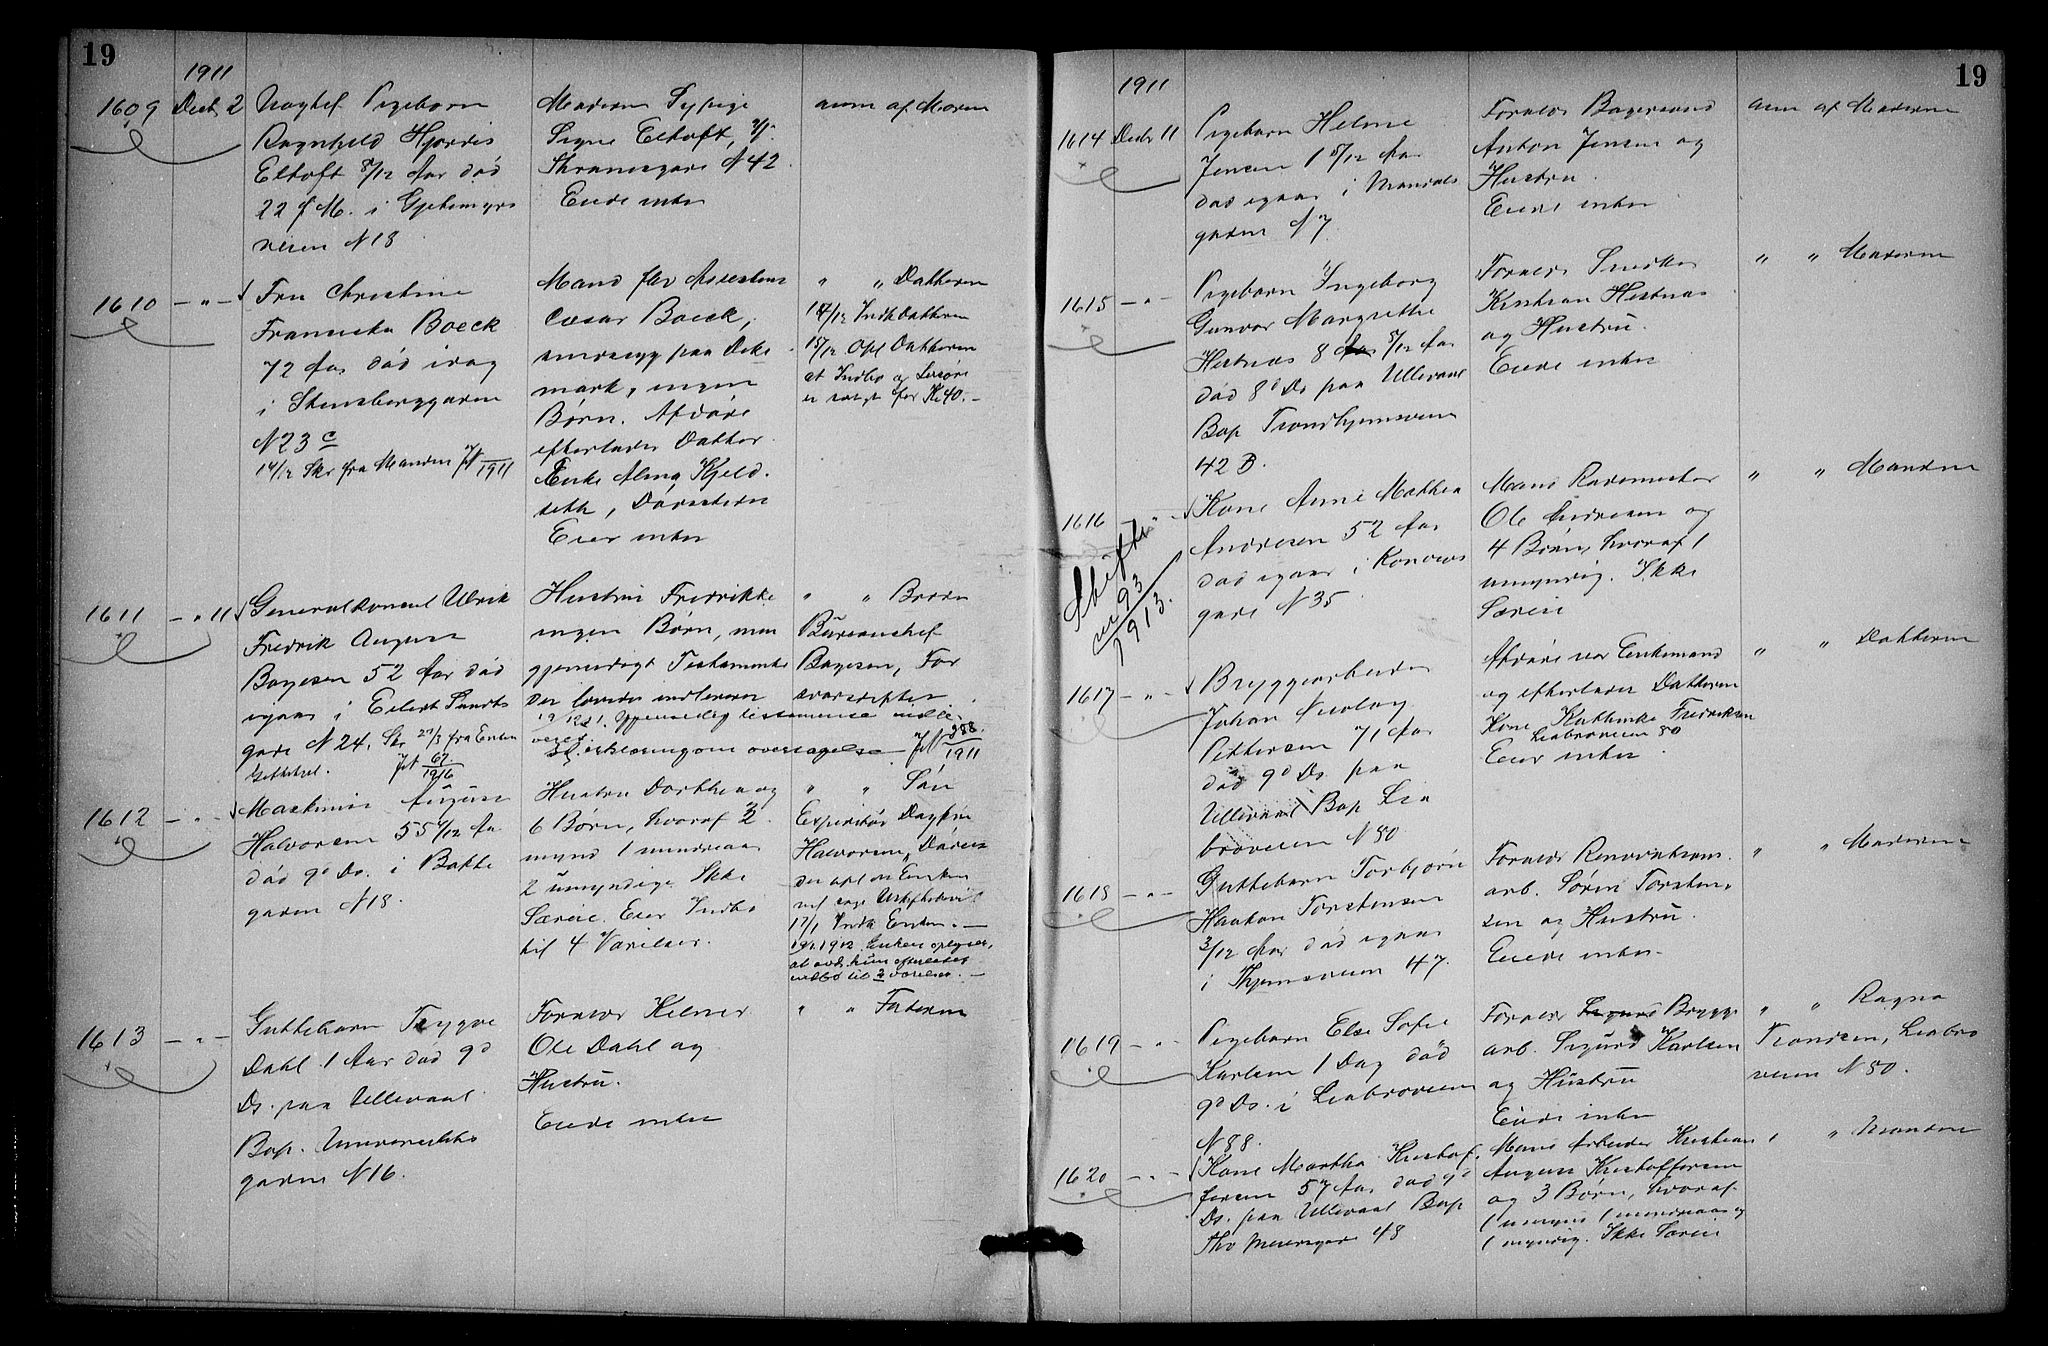 19
1911
1609 Decb 2
Uægtef. Pigebarn
Ragnhild Hjørdis
Eltoft 8/12 Aar død
22 f. M. i Gjetemyrs
veien N 18
Moderen Sypige
Signe Eltoft,
N 42
Eiede intet
anm af Moren
1610 — " —
Fru Christine
Franciska Boeck
72 Aar død idag
i Stensberggaden
N 23 c
14/12 Skr fra Manden 1911
Mand fhv Assistent
Cæsar Boeck,
sindssyg paa Dike
mark, ingen
Børn. Afdøde
efterlader Datter
Enke Alma Kjeld
seth, Dørsteden
Eier intet
" " Datteren
14/12 Indk Datteren
15/12 Opl Datteren
at Indbo og Løsøre
er solgt for Kr 40.—
1611 — " 11
Generalkonsul Ulrik
Fredrik August
Bøyesen 52 Aar død
igaar i Eilert Sundts
gade N 24. Skr 27/3 fra Enken
67
1916
Hustru Fredrikke
ingen Børn, men
gjensidigt Testamente
der loves indleveret
19/12 d. 1. Gjensidig testamente indle-
veret.
erklæring om overtagelse JN 388
1911
" " Broder
Bureauchef
Bøyesen, For
svarsdeptet
1612 — " —
Maskinist August
Halvorsen 55 Aar
død 9d Ds. i Bakke
gaden N 18.
Hustru Dorthea og
6 Børn, hvoraf 3
mynd 1 mindreaar
2 umyndige. Ikke
Særeie. Eier Indbo
til 4 Værelser.
" " Søn
Expeditør Dagfin
Halvorsen, Døress
der opl at Enken
vil søge Uskiftebevil
17/1 Indk Enken. —
19/1 1912. Enken oplyser,
at avd. kun efterlod
indbo til 2 værelser. —
1613 — " —
Guttebarn Trygve
Dahl 1 Aar død 9d
Ds. paa Ullevaal
Bop. Universitets
gaden N 16.
Forældr Kelner
Ole Dahl og
Hustru.
Eiede intet
" " Faderen
19
1911
1614 Decb 11
Pigebarn Helene
Jensen 1 5/12 Aar
død igaar i Mandals
gaden N 7
Forældr Bagersvend
Anton Jensen og
Hustru.
Eiede intet
anm af Moderen
1615 — " —
Pigebarn Ingeborg
Gunvor Margrethe
Hestnæs 8 5/12 Aar
død 8d Ds paa Ullevaal
Bop Trondhjemsveien
42 B.
Forældr Snedker
Kristian Hestnæs
og Hustru.
Eiede intet
" " Moderen
1616 "
Skifte
nr 93
1913.
Kone Anne Mathea
Andresen 52 Aar
død igaar i Konows
gade N 35
Mand Rodemester
Ole Andresen og
4 Børn, hvoraf 1
umyndig. Ikke
Særeie
" " Manden
1617 — " —
Bryggearbeider
Johan Nicolay
Pettersen 71 Aar
død 9d Ds. paa
Ullevaal Bop Lia
broveien N 50
Afdøde var Enkemand
og efterlader Datteren
Kone Kathinka Fredriksen
Liabroveien 50
Eier intet
" " Datteren
1618 — " —
Guttebarn Torbjørn
Haakon Torstensen
3/12 Aar død igaar
i Thjemsveien 47.
Forældr Renovations
arb. Søren Torsten-
sen og Hustru.
Eiede intet.
" " Moderen
1619 — " —
Pigebarn Else Sofie
Karlsen 1 Dag død
9d Ds. i Liabroveien
N 88.
Forældr Brygge
arb. Sigurd Karlsen
og Hustru
Eiede intet
" " Ragna
Trondsen, Liabro
veien N 50.
1620 — " —
Kone Martha Kristof-
fersen 57 Aar død 9d
Ds. paa Ullevaal Bop
Thv Meiersgade 48
Mand Arbeider Kristian
August Kristoffersen
og 3 Børn, hvoraf
1 umynd 1 mindreaar og
1 myndig. Ikke Særeie
" " Manden